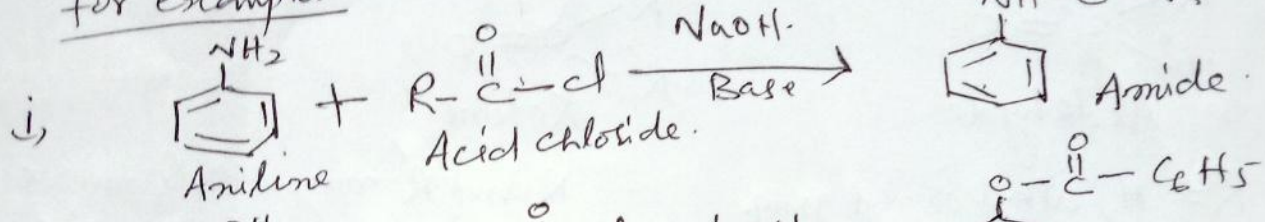 for example
NH2
O
i, + R-C-Cl NaOH. Base Amide.
Aniline Acid chloride.
O
O-C-C6H5
O